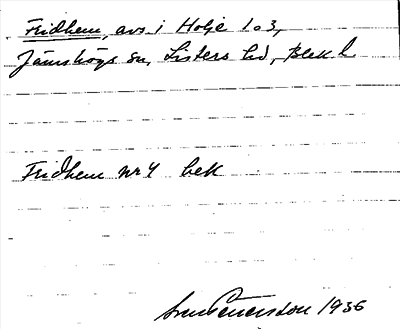 Fridhem, avs. i Holje 1 o 3,
Jämshögs sn, Listers hd, Blek. l
Fridhem nr 4 bek
Petersson 1936